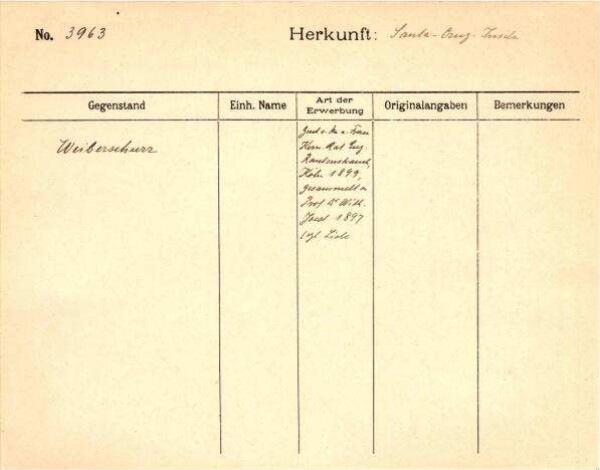 No. 3963
Herkunft: Santa-Cruz-Inseln
Gegenstand
Einh. Name
Art der Erwerbung
Originalangaben
Bemerkungen
Weiberschurz
v. Frau
Herrn Rat Eug.
Rautenstrauch,
Köln 1899,
gesammelt v.
Prof Dr Wilh.
Joest 1897
Liste